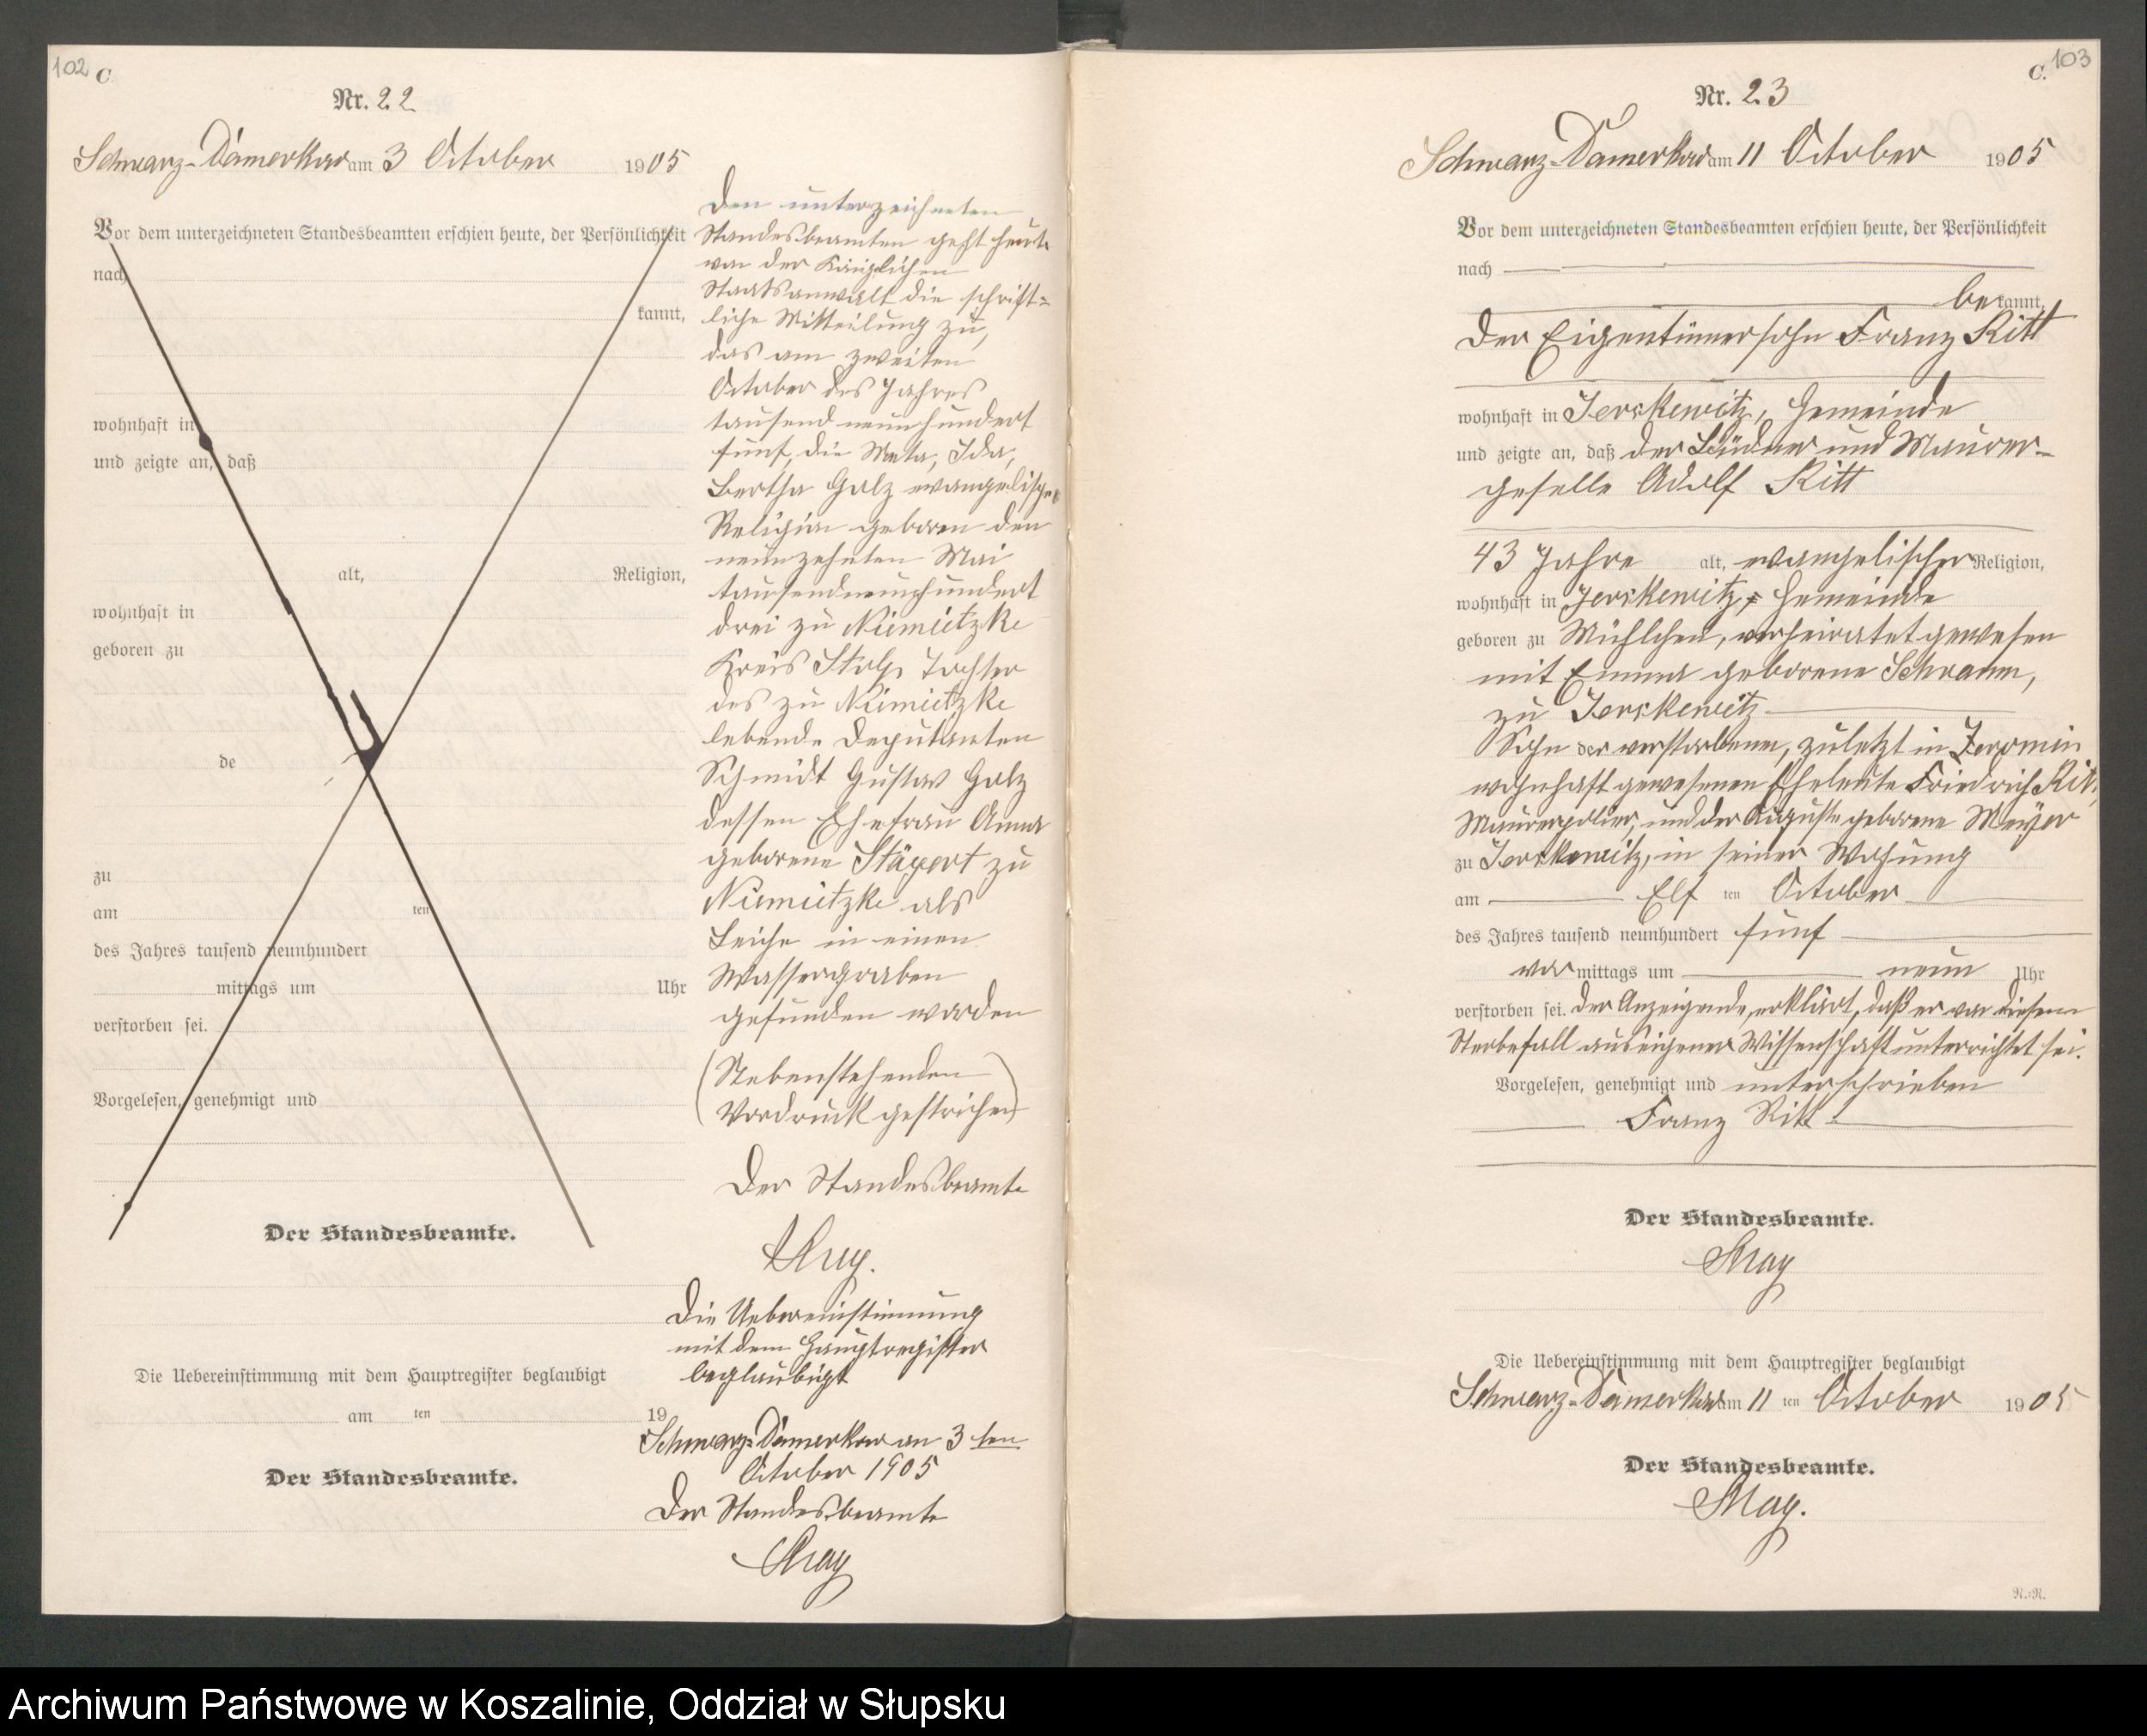 102 C.
Nr. 22
Schwarz-Damerkow am 3 October 1905
Vor dem unterzeichneten Standesbeamten erschien heute, der Persönlichkeit
nach
kannt,
wohnhaft in
und zeigte an, daß
alt, Religion,
wohnhaft in
geboren zu
de
zu
am ten
des Jahres tausend neunhundert
mittags um Uhr
verstorben sei.
Vorgelesen, genehmigt und
Der Standesbeamte.
Die Uebereinstimmung mit dem Hauptregister beglaubigt
am ten 19
Der Standesbeamte.
Den unterzeichneten
Standesbeamten geht heute
von der Königlichen
Staatsanwalt die schrift=
liche Mitteilung zu,
das am zweiten
October des Jahres
tausend neunhundert
fünf, die Meta, Ida,
Bertha Golz evangelische
Religion geboren den
neunzehnten Mai
tausendneunhundert
drei zu Niemietzke
Kreis Stolp Tochter
des zu Niemietzke
lebende Deputanten
Schmidt Gustav Golz
dessen Ehefrau Anna
geborene zu
Niemietzke als
Leiche in einen
Wassergraben
gefunden worden
(Nebenstehenden
Vordruck gestrichen)
Der Standesbeamte
Die Uebereinstimmung
mit dem Hauptregister
beglaubigt
Schwarz=Damerkow an 3 ten
October 1905
Der Standesbeamte
C. 103
Nr. 23
Schwarz=Damerkow am 11 October 1905
Vor dem unterzeichneten Standesbeamten erschien heute, der Persönlichkeit
nach
bekannt,
der Eigentümersohn Franz Ritt
wohnhaft in Jerskewitz, Gemeinde
und zeigte an, daß der Büdner und Maurer-
geselle Adolf Ritt
43 Jahre alt, evangelischer Religion,
wohnhaft in Jerskewitz, Gemeinde
geboren zu Mühlchen, verheiratet gewesen
mit Emma geborene Schramm,
zu Jerskewitz
Sohn der verstorbenen, zuletzt in Zeromin
wohnhaft gewesenen Eheleute Friedrich Ritt,
Maurerpolier, und der Auguste geborene Meÿer
zu Jerskewitz, in seiner Wohung
am Elf ten October
des Jahres tausend neunhundert fünf
vor mittags um neun Uhr
verstorben sei. Der Anzeigende, erklärt, daß er von diesem
Sterbefall aus eigener Wissenschaft unterrichtet sei.
Vorgelesen, genehmigt und unterschrieben
Franz Ritt
Der Standesbeamte.
Die Uebereinstimmung mit dem Hauptregister beglaubigt
Schwarz=Damerkow am 11 ten October 1905
Der Standesbeamte.
N.=N.
Archiwum Państwowe w Koszalinie, Oddział w Słupsku